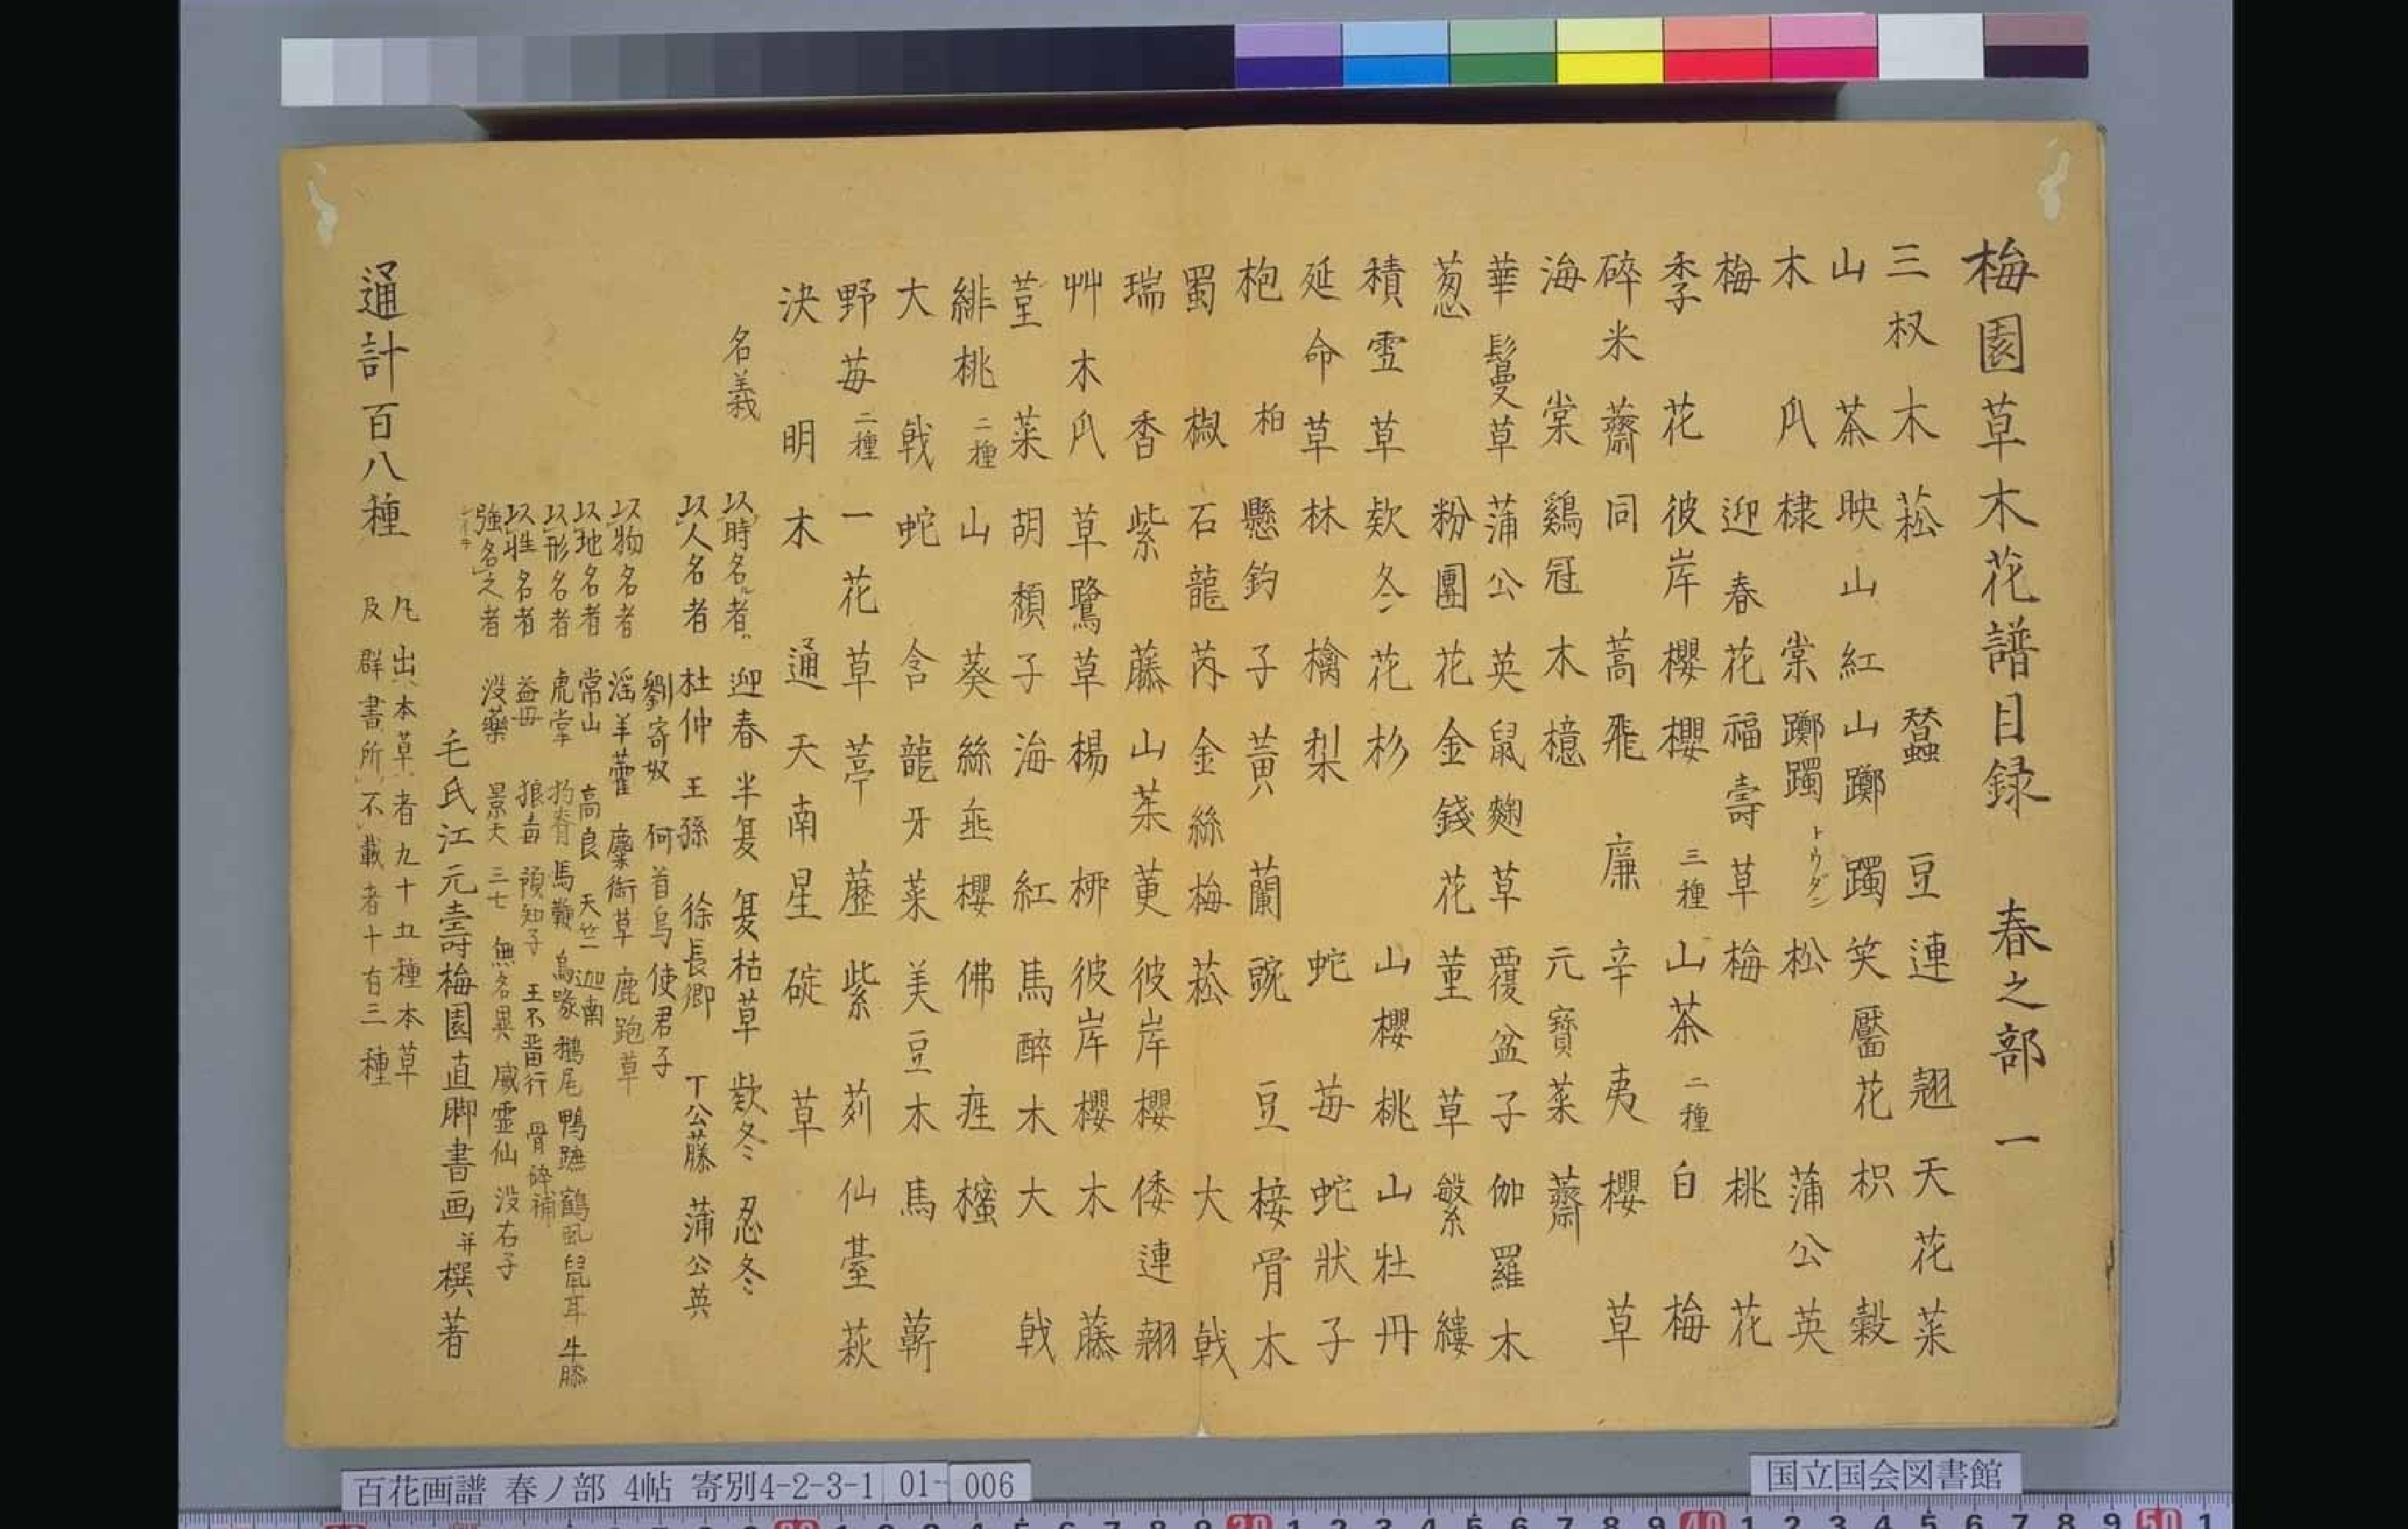 梅園草木花譜目録 春之部 一
三椏木 菘 蠶豆 連翹 天花菜
山茶 映山紅 山躑躅 笑靨花 枳穀
木瓜 棣棠 躑躅 トウダン 松 蒲公英
梅 迎春花 福壽草 梅 桃花
李花 彼岸櫻 櫻 三種 山茶 二種 白梅
碎米薺 同 蒿 飛廉 辛夷 櫻草
海棠 鷄冠木 檍 元寶菜 薺
華鬘草 蒲公英 鼠麹草 覆盆子 伽羅木
葱 粉團花 金錢花 菫草 繁縷
積雪草 欵冬花 杉 山櫻桃 山牡丹
延命草 林檎 梨 蛇苺 蛇狀子
枹 柏 懸鈞子 黃蘭 豌豆 椄骨木
蜀椒 石龍芮 金絲梅 菘 大戟
瑞香 紫藤 山茱萸 彼岸櫻 倭連翹
艸木瓜 草鷺草 楊柳 彼岸櫻 木藤
菫菜 胡頽子 海紅 馬醉木 大戟
緋桃 二種 山葵 絲埀櫻 佛座 櫁
大戟 蛇含 龍牙菜 美豆木 馬蘄
野苺 二種 一花草 葶藶 紫荊 仙臺萩
決明木 通天 南星 碇草
名義 以時名者 迎春 半夏 夏枯草 欵冬 忍冬
以人名者 杜仲 王孫 徐長卿 丁公藤 蒲公英
劉寄奴 何首烏 使君子
以物名者 淫羊藿 麋銜草 鹿跑草
以地名者 常山 高良 天竺 迦南
以形名者 虎掌 狗脊 馬鞭 烏喙 鵝尾 鴨蹠 鶴虱 鼠耳 牛膝
以性名者 益毋 狼毒 預知子 王不畱行 骨碎補
強名之者 没藥 景天 三七 無名異 威霊仙 没石子
毛氏江元壽梅園直脚書画并撰著
通計百八種 凡出本草者九十五種本草
及群書所不載者十有三種
百花画譜 春ノ部 4帖 寄別4-2-3-1 01- 006
国立国会図書館